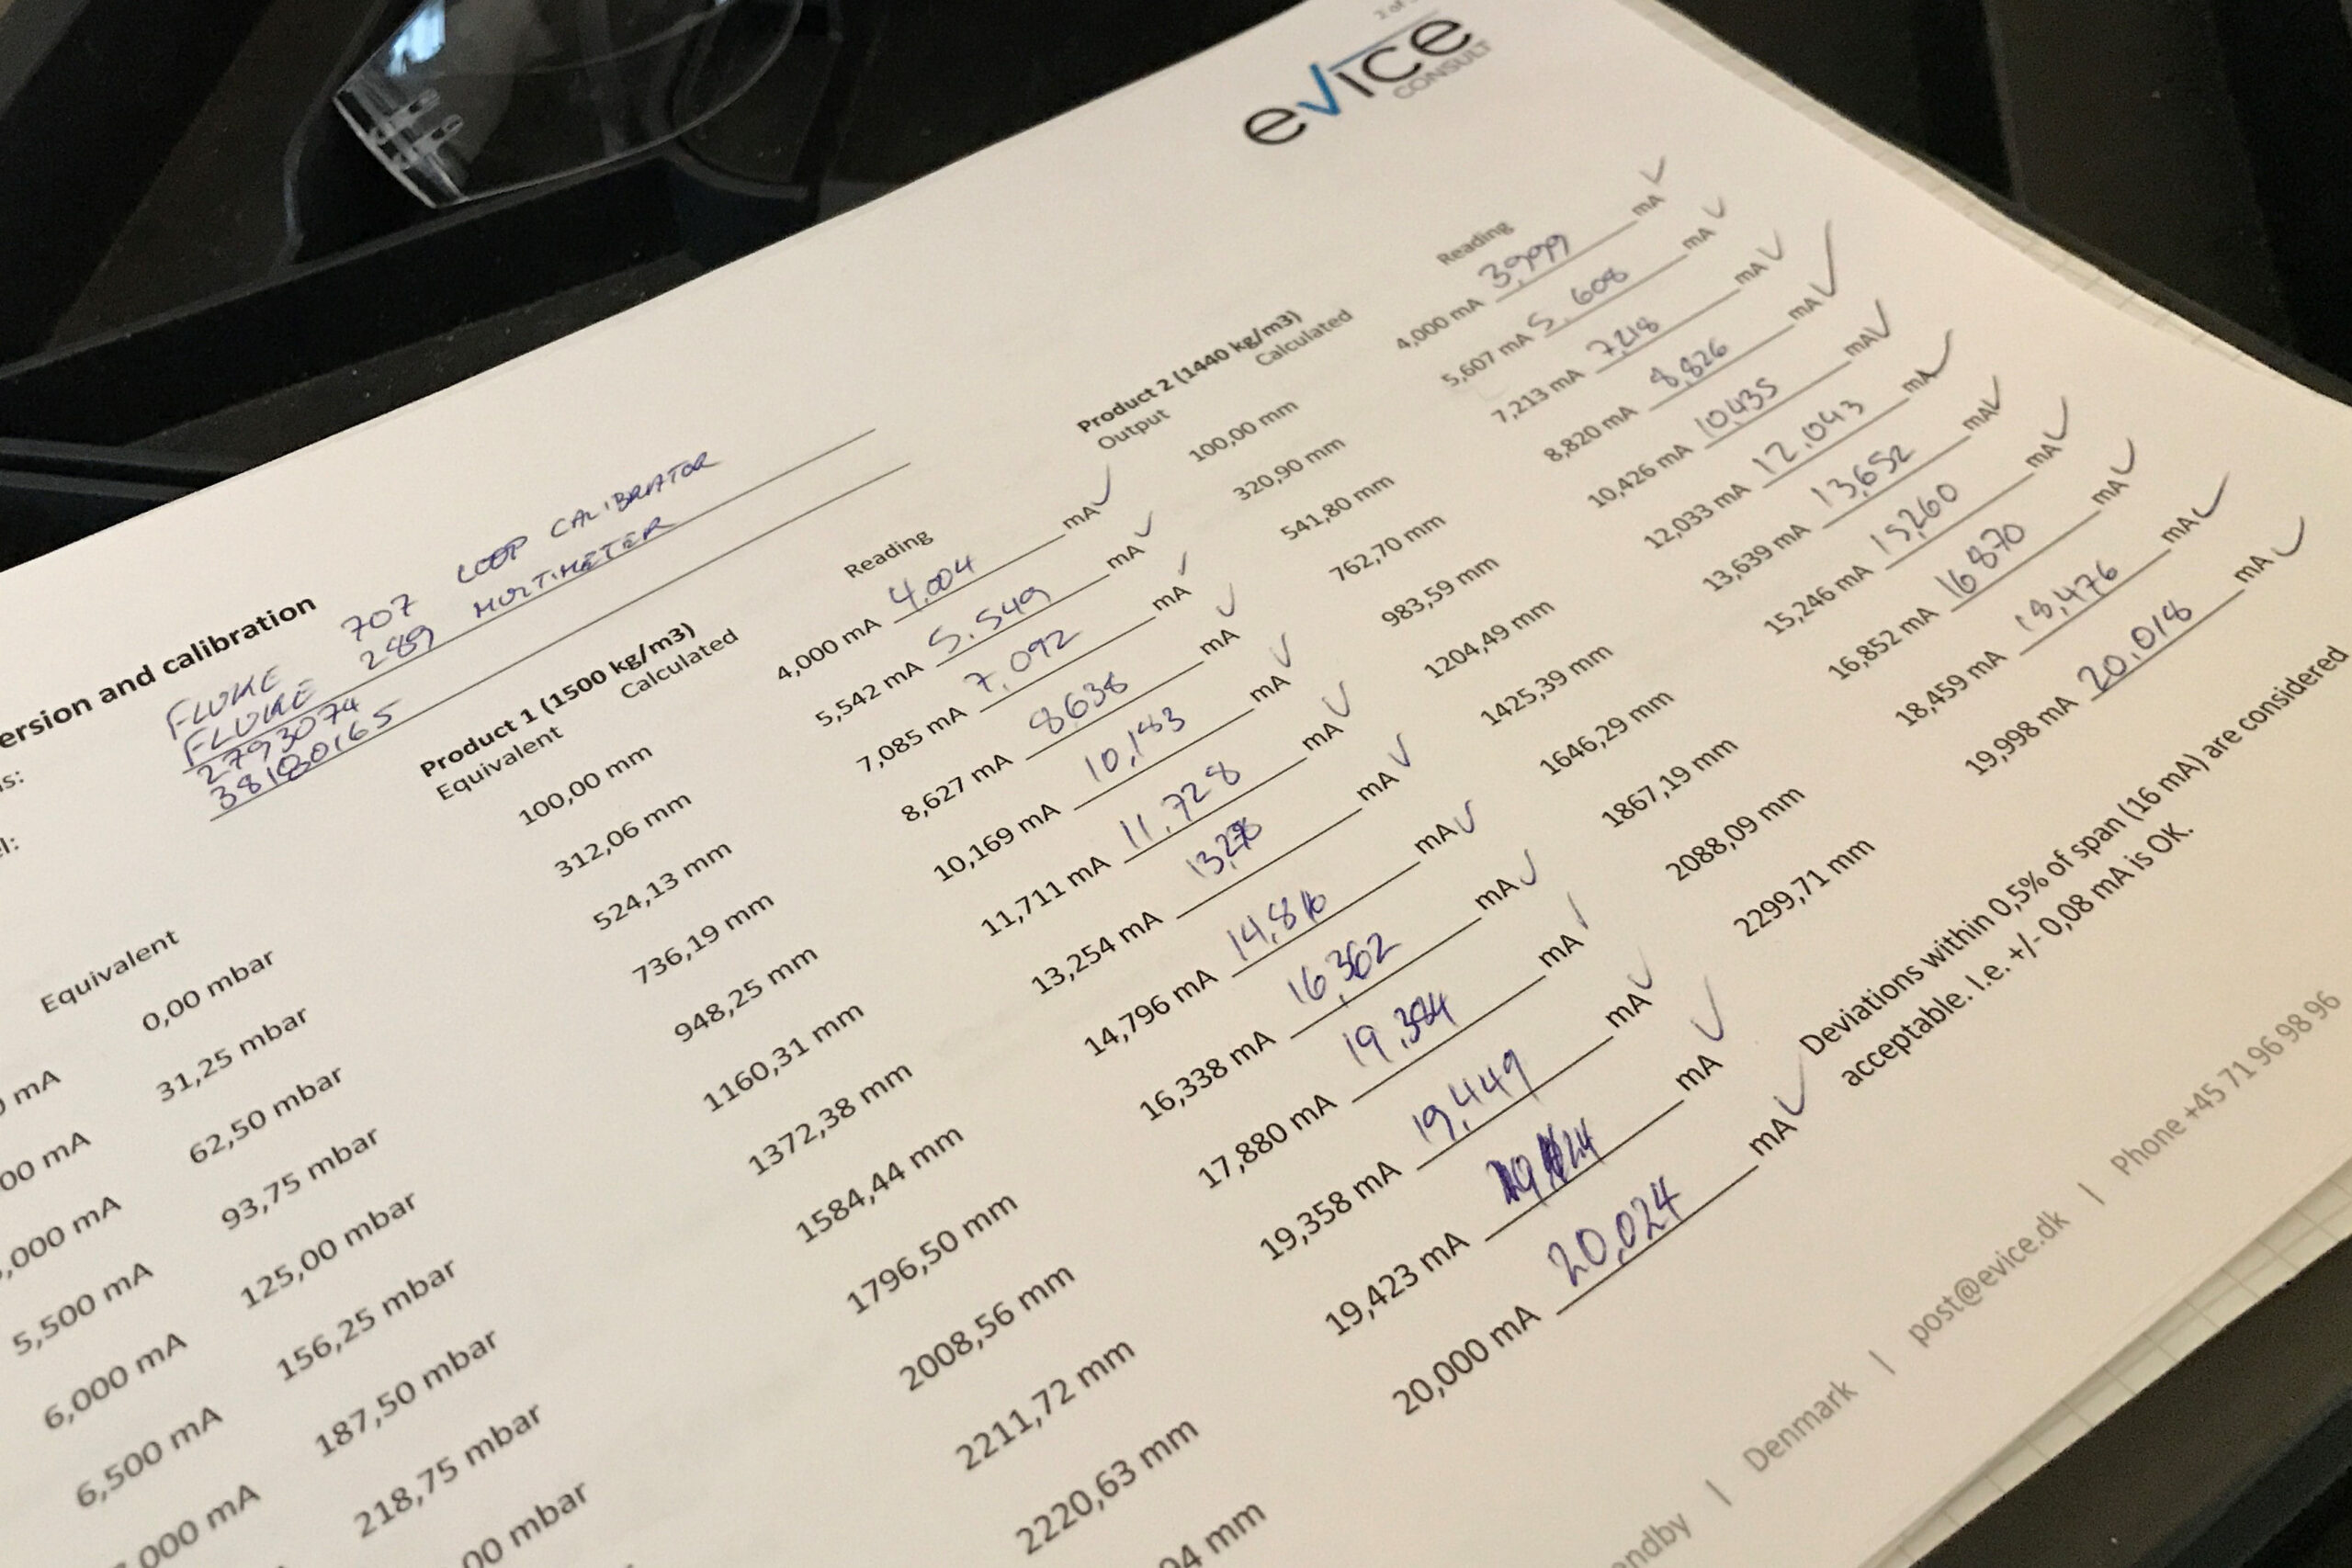 evice
CONSULT
ersion and calibration
FLUKE 707 LOOP CALIBRATOR
FLUKE 289 MULTIMETER
2793074
38180165
Product 1 (1500 kg/m3)
Equivalent Calculated Reading
100,00 mm 4,000 mA 4,004 mA ✓
312,06 mm 5,542 mA 5.549 mA ✓
524,13 mm 7,085 mA 7.092 mA ✓
736,19 mm 8,627 mA 8638 mA ✓
948,25 mm 10,169 mA 10,183 mA ✓
1160,31 mm 11,711 mA 11,728 mA ✓
1372,38 mm 13,254 mA mA ✓
1584,44 mm 14,796 mA 14,816 mA ✓
1796,50 mm 16,338 mA 16,362 mA ✓
2008,56 mm 17,880 mA mA ✓
2211,72 mm 19,358 mA 19,449 mA ✓
2220,63 mm 19,423 mA mA ✓
94 mm 20,000 mA 20,024 mA ✓
Product 2 (1440 kg/m3)
Output Calculated Reading
100,00 mm 4,000 mA 3,999 mA ✓
320,90 mm 5,607 mA 5.608 mA ✓
541,80 mm 7,213 mA 7,218 mA ✓
762,70 mm 8,820 mA 8,826 mA ✓
983,59 mm 10,426 mA 10,435 mA ✓
1204,49 mm 12,033 mA 12,043 mA ✓
1425,39 mm 13,639 mA 13,652 mA ✓
1646,29 mm 15,246 mA 15,260 mA ✓
1867,19 mm 16,852 mA 16870 mA ✓
2088,09 mm 18,459 mA 18,476 mA ✓
2299,71 mm 19,998 mA 20,018 mA ✓
Equivalent
0,00 mbar
mA 31,25 mbar
00 mA 62,50 mbar
,000 mA 93,75 mbar
5,500 mA 125,00 mbar
6,000 mA 156,25 mbar
6,500 mA 187,50 mbar
000 mA 218,75 mbar
00 mbar
Deviations within 0,5% of span (16 mA) are considered
acceptable. I.e. +/- 0,08 mA is OK.
endby | Denmark | post@evice.dk | Phone +45 71 96 98 96